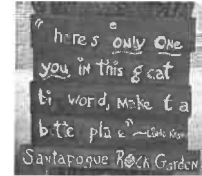 "heres only One
you, in this g eat
word, Make t a
b tte pla e" ~
Santapogue Rock Garden